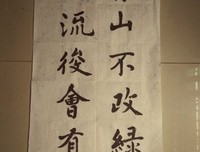 山不改緑
流後會有